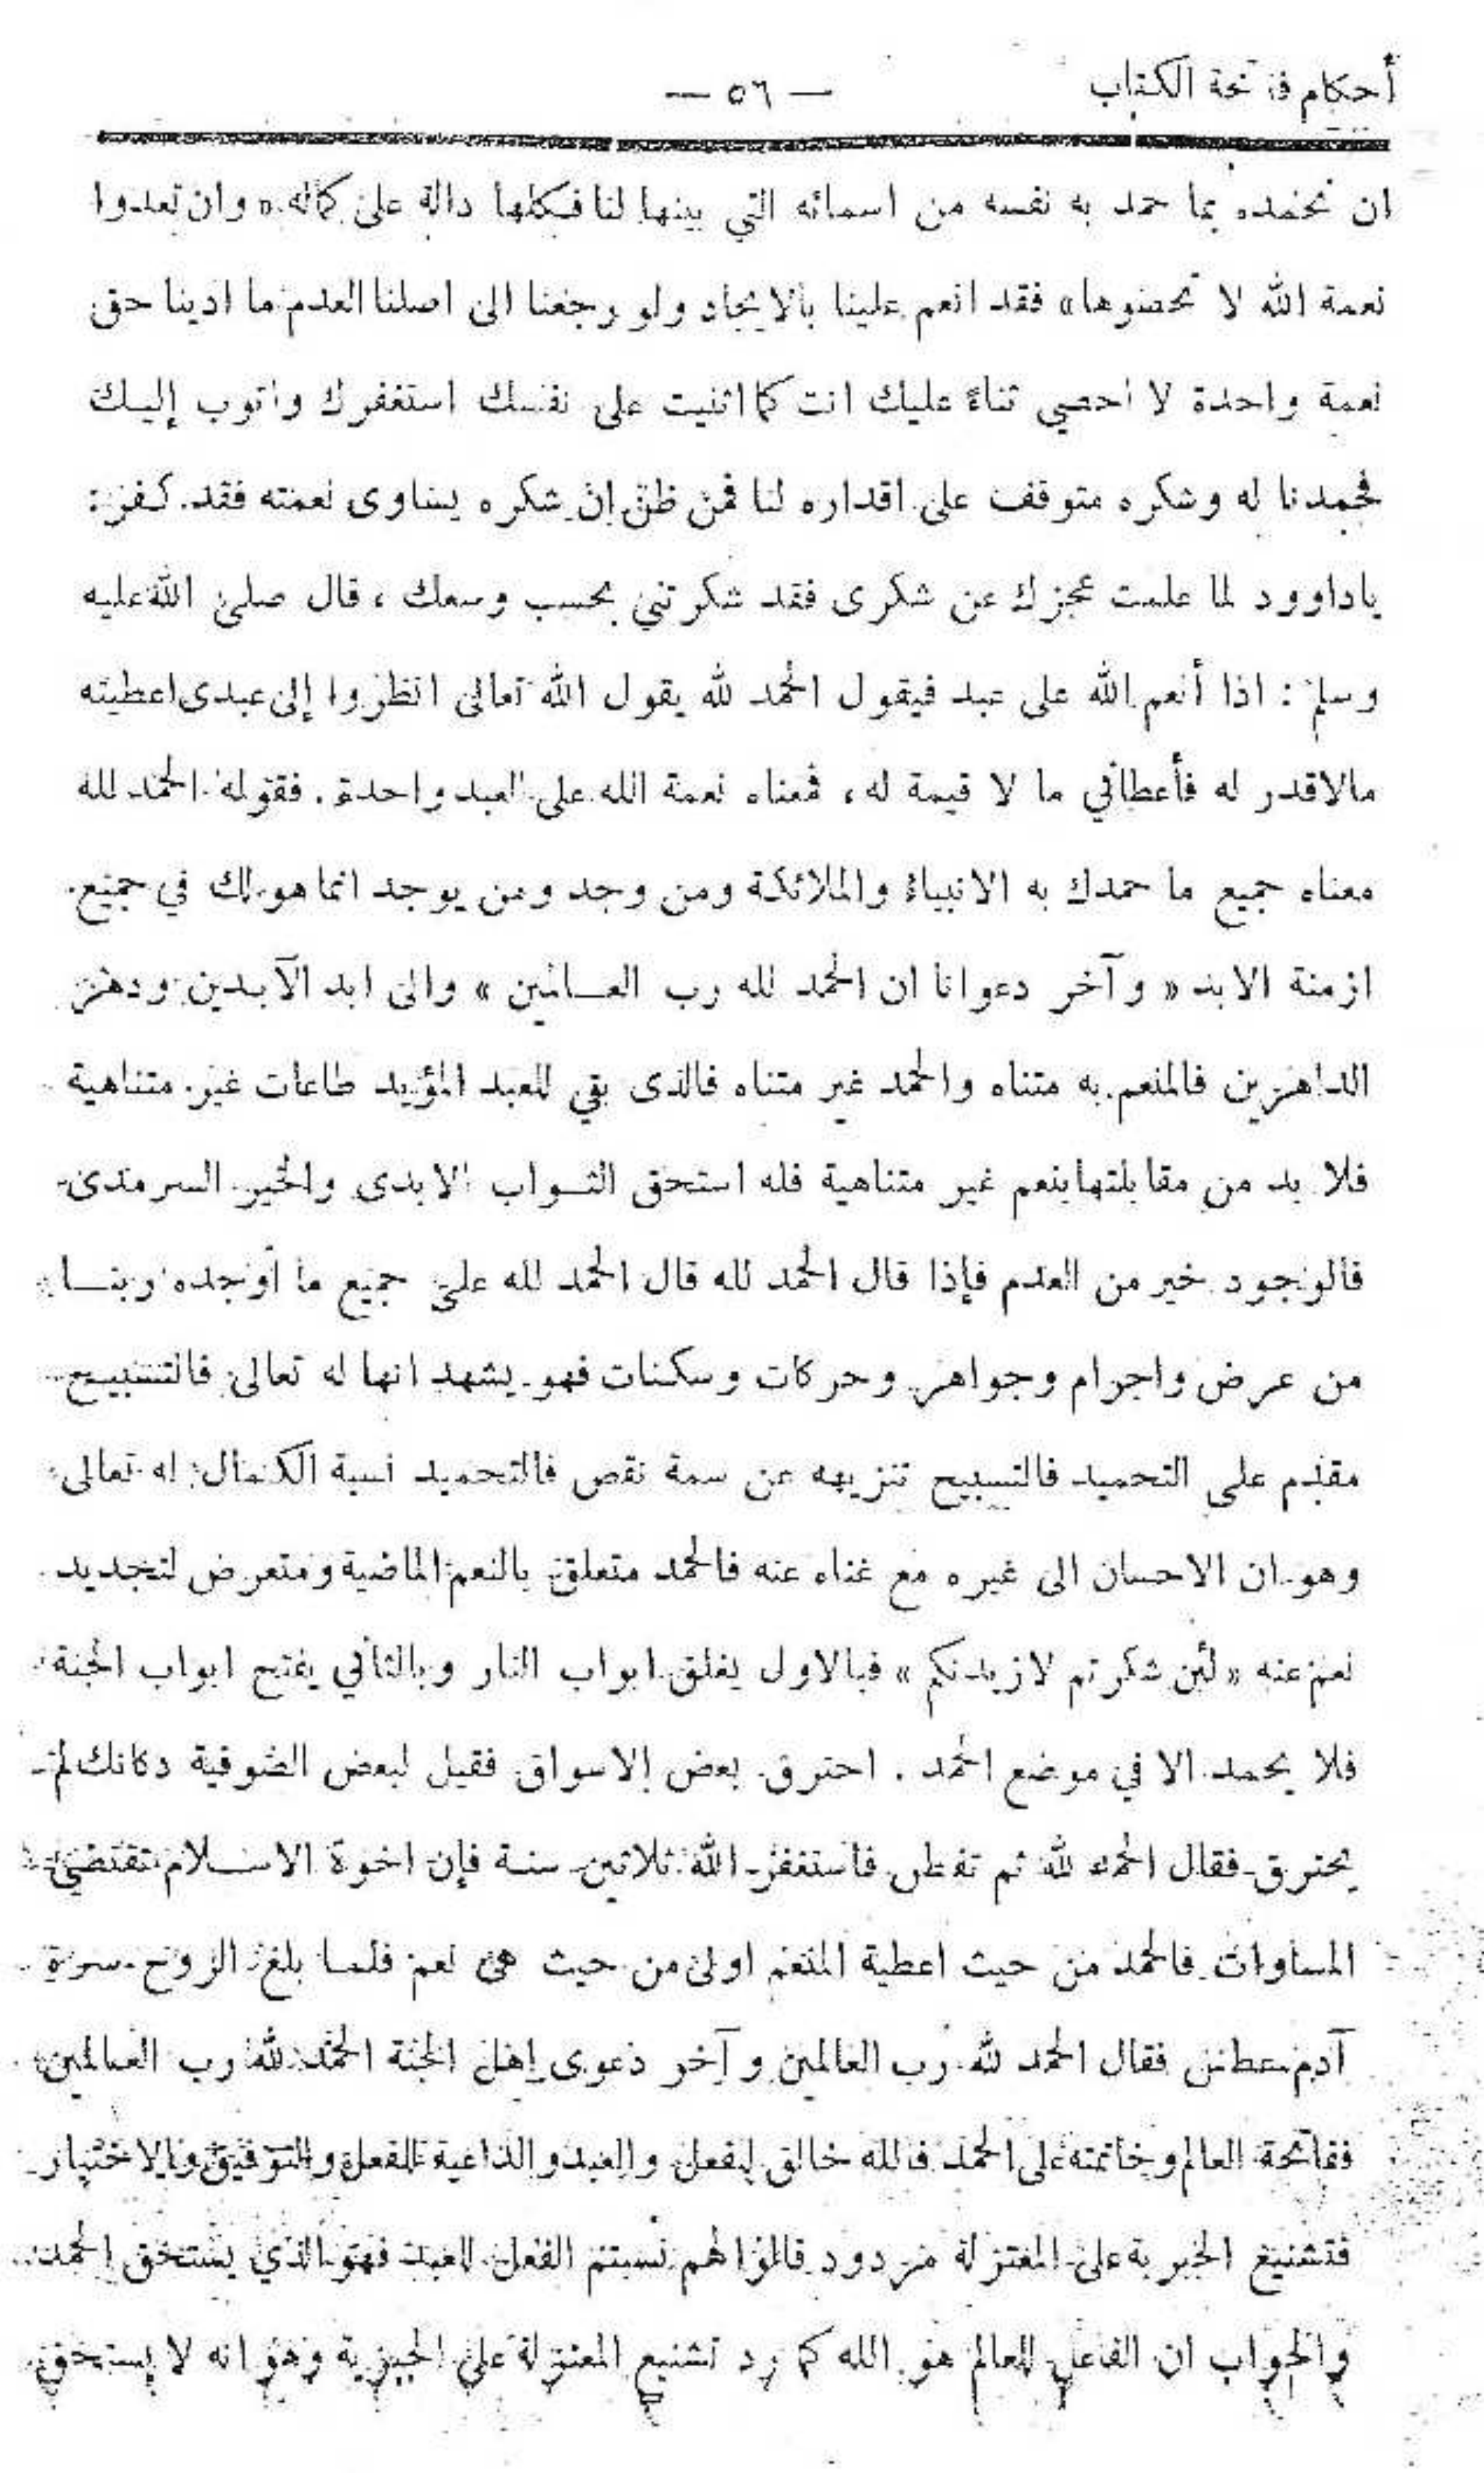 أحكام فاتحة الكتاب
— ٥٦ —
ان نحمده بما حمد به نفسه من اسمائه التي بينها لنا فكلها دالة على كماله « وان تعدوا
نعمة الله لا تحصوها » فقد انعم علينا بالايجاد ولو رجعنا الى اصلنا العدم ما ادينا حق
نعمة واحدة لا احصي ثناء عليك انت كما اثنيت على نفسك استغفرك واتوب إليك
فحمدنا له وشكره متوقف على اقداره لنا فمن ظن إن شكره يساوى نعمته فقد كفر :
ياداوود لما علمت عجزك عن شكرى فقد شكرتني بحسب وسعك ، قال صلى الله عليه
وسلم : اذا أنعم الله على عبد فيقول الحمد لله يقول الله تعالى انظروا إلى عبدى اعطيته
مالا قدر له فأعطاني ما لا قيمة له ، فمعناه نعمة الله على العبد واحدة . فقوله الحمد لله
معناه جميع ما حمدك به الانبياء والملائكة ومن وجد ومن يوجد انما هو لك في جميع
ازمنة الابد « وآخر دعوانا ان الحمد لله رب العالمين » والى ابد الآبدين ودهر
الداهرين فالمنعم به متناه والحمد غير متناه فالذى بقي للعبد المؤيد طاعات غير متناهية
فلا بد من مقابلتها بنعم غير متناهية فله استحق الثواب الابدى والخير السرمدى
فالوجود خير من العدم فإذا قال الحمد لله قال الحمد لله على جميع ما أوجده ربنا
من عرض واجرام وجواهر وحركات وسكنات فهو يشهد انها له تعالى فالتسبيح
مقدم على التحميد فالتسبيح تنزيهه عن سمة نقص فالتحميد نسبة الكمال له تعالى
وهو ان الاحسان الى غيره مع غناه عنه فالحمد متعلق بالنعم الماضية ومتعرض لتجديد
نعم عنه « لئن شكرتم لازيدنكم » فبالاول يغلق ابواب النار وبالثاني يفتح ابواب الجنة
فلا يحمد الا في موضع الحمد . احترق بعض الاسواق فقيل لبعض الصوفية دكانك لم
يحترق فقال الحمد لله ثم تفطن فاستغفر الله ثلاثين سنة فإن اخوة الاسلام تقتضي
المساوات فالحمد من حيث اعطية المنعم اولى من حيث هى نعم فلما بلغ الروح سرة
آدم عطس فقال الحمد لله رب العالمين وآخر دعوى اهل الجنة الحمد لله رب العالمين
ففاتحة العالم وخاتمته على الحمد فالله خالق لفعل والعبد والداعية للفعل والتوفيق وبالاختيار
فتشنيع الجبرية على المعتزلة مردود قالوا لهم نسبتم الفعل للعبد فهو الذي يستحق الحمد
والجواب ان الفاعل للعالم هو الله كما رد تشنيع المعتزلة على الجبرية وهو انه لا يستحق